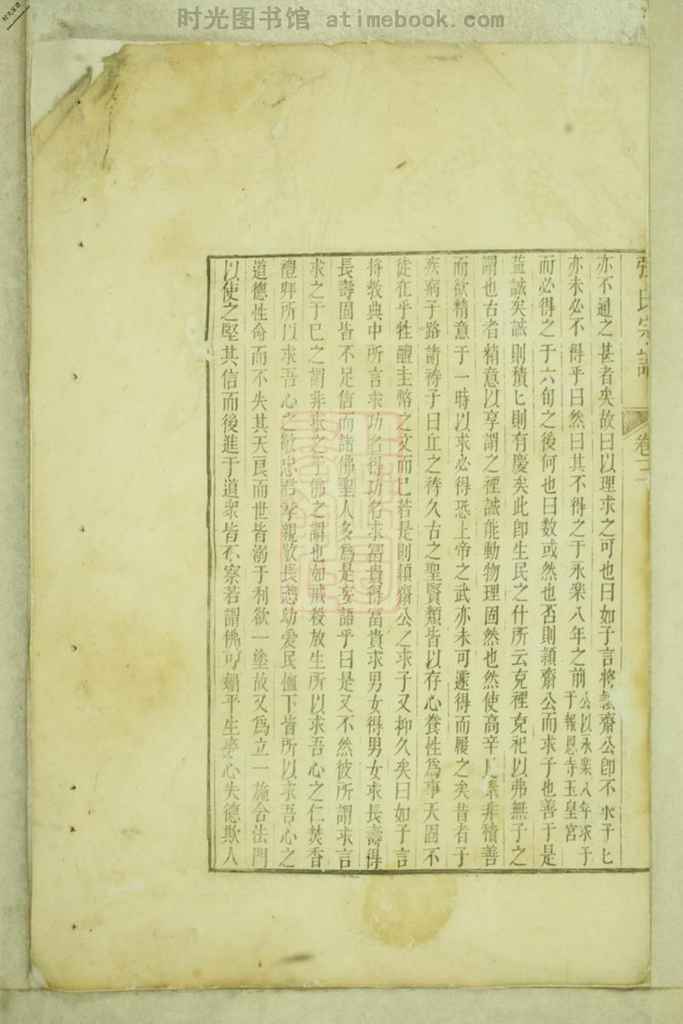 时光图书馆 atimebook.com
时光图书馆
張氏宗譜 卷二
亦不通之甚者矣故曰以理求之可也曰如子言將穎齋公卽不求子匕
亦未必不得乎曰然曰其不得之于永樂八年之前公以永樂八年求子于報恩寺玉皇宮
而必得之于六旬之後何也曰数或然也否則穎齋公而求子也善于是
益誠矣誠則積匕則有慶矣此卽生民之什所云克禋克祀以弗無子之
謂也古者精意以享謂之禋誠能動物理固然也然使高辛非積善
而欲精意于一時以求必得恐上帝之武亦未可遽得而履之矣昔者子
疾病子路請祷子曰丘之祷久古之聖賢類皆以存心養性為事天固不
徒在乎牲醴圭幣之文而已若是則穎齋公之求子又抑久矣曰如子言
将教典中所言求功名得功名求富貴得富貴求男女得男女求長壽得
長壽固皆不足信而諸佛聖人多為是妄語乎曰是又不然彼所謂求言
求之于巳之謂非求之于佛之謂也如戒殺放生所以求吾心之仁焚香
禮拜所以求吾心之敬忠君孝親敬長慈幼爱民恤下皆所以求吾心之
道德性命而不失其天良而世皆溺于利欲一塗故又為立一法門
以使之堅其信而後進于道衆皆不察若謂佛可媚乎生心失德欺人